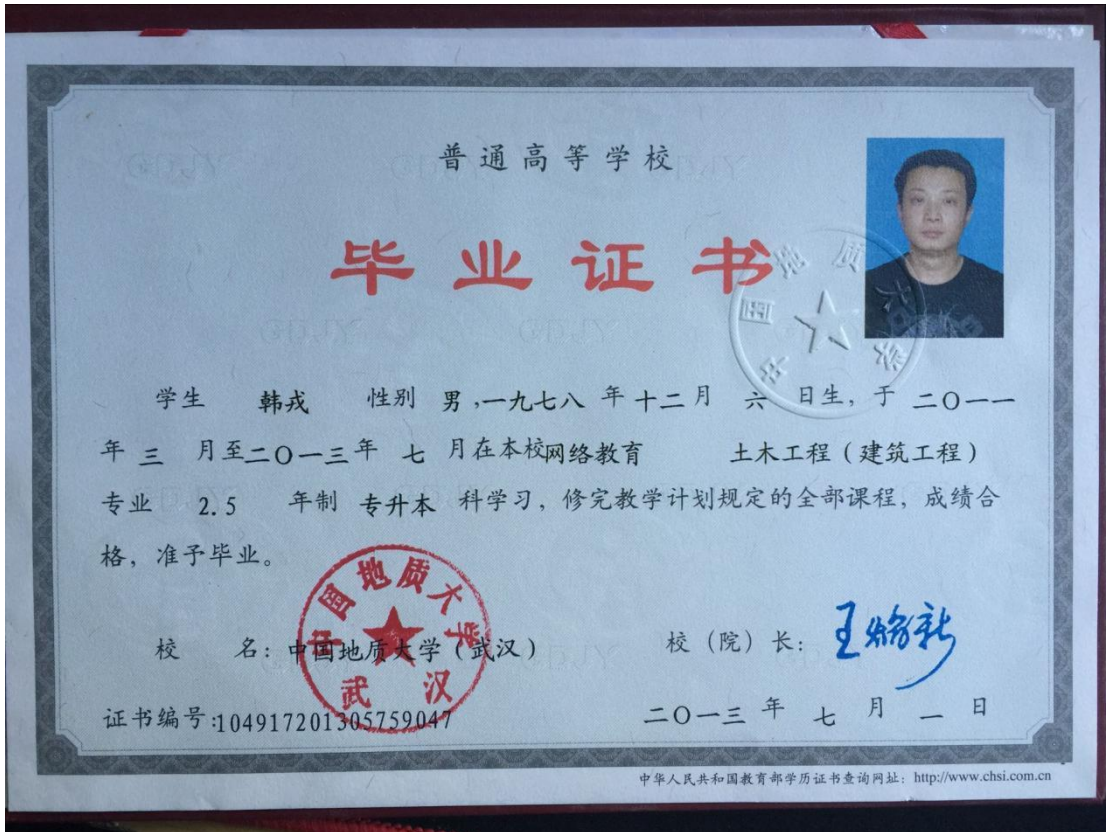 普通高等学校
毕业证书
学生 韩戎 性别 男,一九七八 年 十二 月 六 日生, 于 二〇一一
年 三 月至二〇一三年 七 月在本校网络教育 土木工程(建筑工程)
专业 2.5 年制 专升本 科学习, 修完教学计划规定的全部课程, 成绩合
格, 准予毕业。
中国地质大学
中国地质大学
武汉
校 名: 中国地质大学(武汉) 校(院)长:
证书编号:104917201305759047 二〇一三 年 七 月 一 日
中华人民共和国教育部学历证书查询网址: http://www.chsi.com.cn